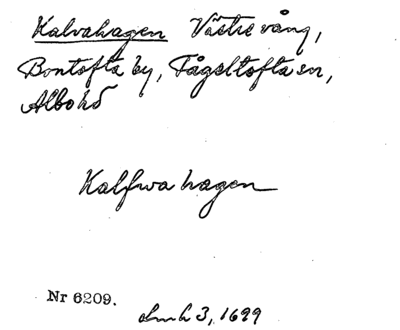 Kalvahagen Västre vång,
Bontofta by, Fågeltofta sn,
Albo hd
Kalfwa hagen
Nr 6209.
3, 1699